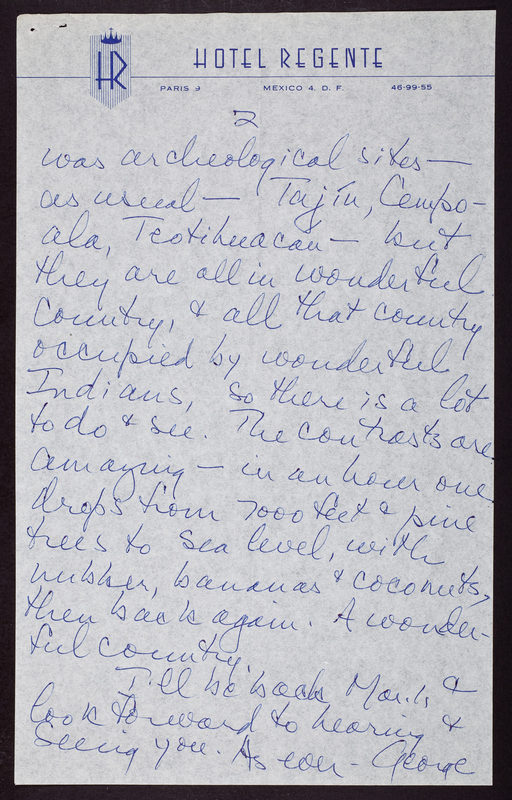 HR
HOTEL REGENTE
PARIS 9 MEXICO 4, D. F. 46-99-55
2
was archeological sites —
as usual — Tajín, Cempo-
ala, Teotihuacan — but
they are all in wonderful
country, & all that country
occupied by wonderful
Indians, so there is a lot
to do & see. The contrasts are
amazing — in an hour one
drops from 7000 feet & pine
trees to sea level, with
rubber, bananas & coconuts,
then back again. A wonder-
ful country.
I'll be back Mar. 1, &
look forward to hearing &
seeing you. As ever - George